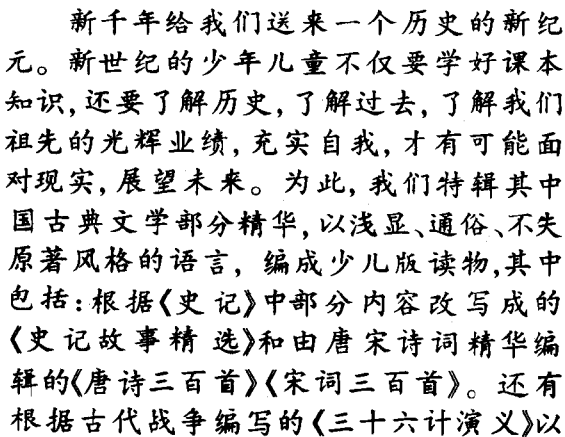 新千年给我们送来一个历史的新纪
元。新世纪的少年儿童不仅要学好课本
知识,还要了解历史,了解过去,了解我们
祖先的光辉业绩,充实自我,才有可能面
对现实,展望未来。为此,我们特辑其中
国古典文学部分精华,以浅显、通俗、不失
原著风格的语言,编成少儿版读物,其中
包括:根据《史记》中部分内容改写成的
《史记故事精选》和由唐宋诗词精华编
辑的《唐诗三百首》《宋词三百首》。还有
根据古代战争编写的《三十六计演义》以